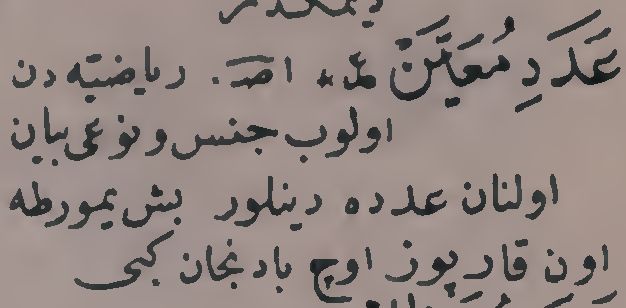 دیمکدر
عَدَدِ مُعَيَّنْ عد. اصـ. ریاضیه دن
اولوب جنس و نوعی بیان
اولنان عدده دینلور بش یمورطه
اون قارپوز اوچ بادنجان کبی